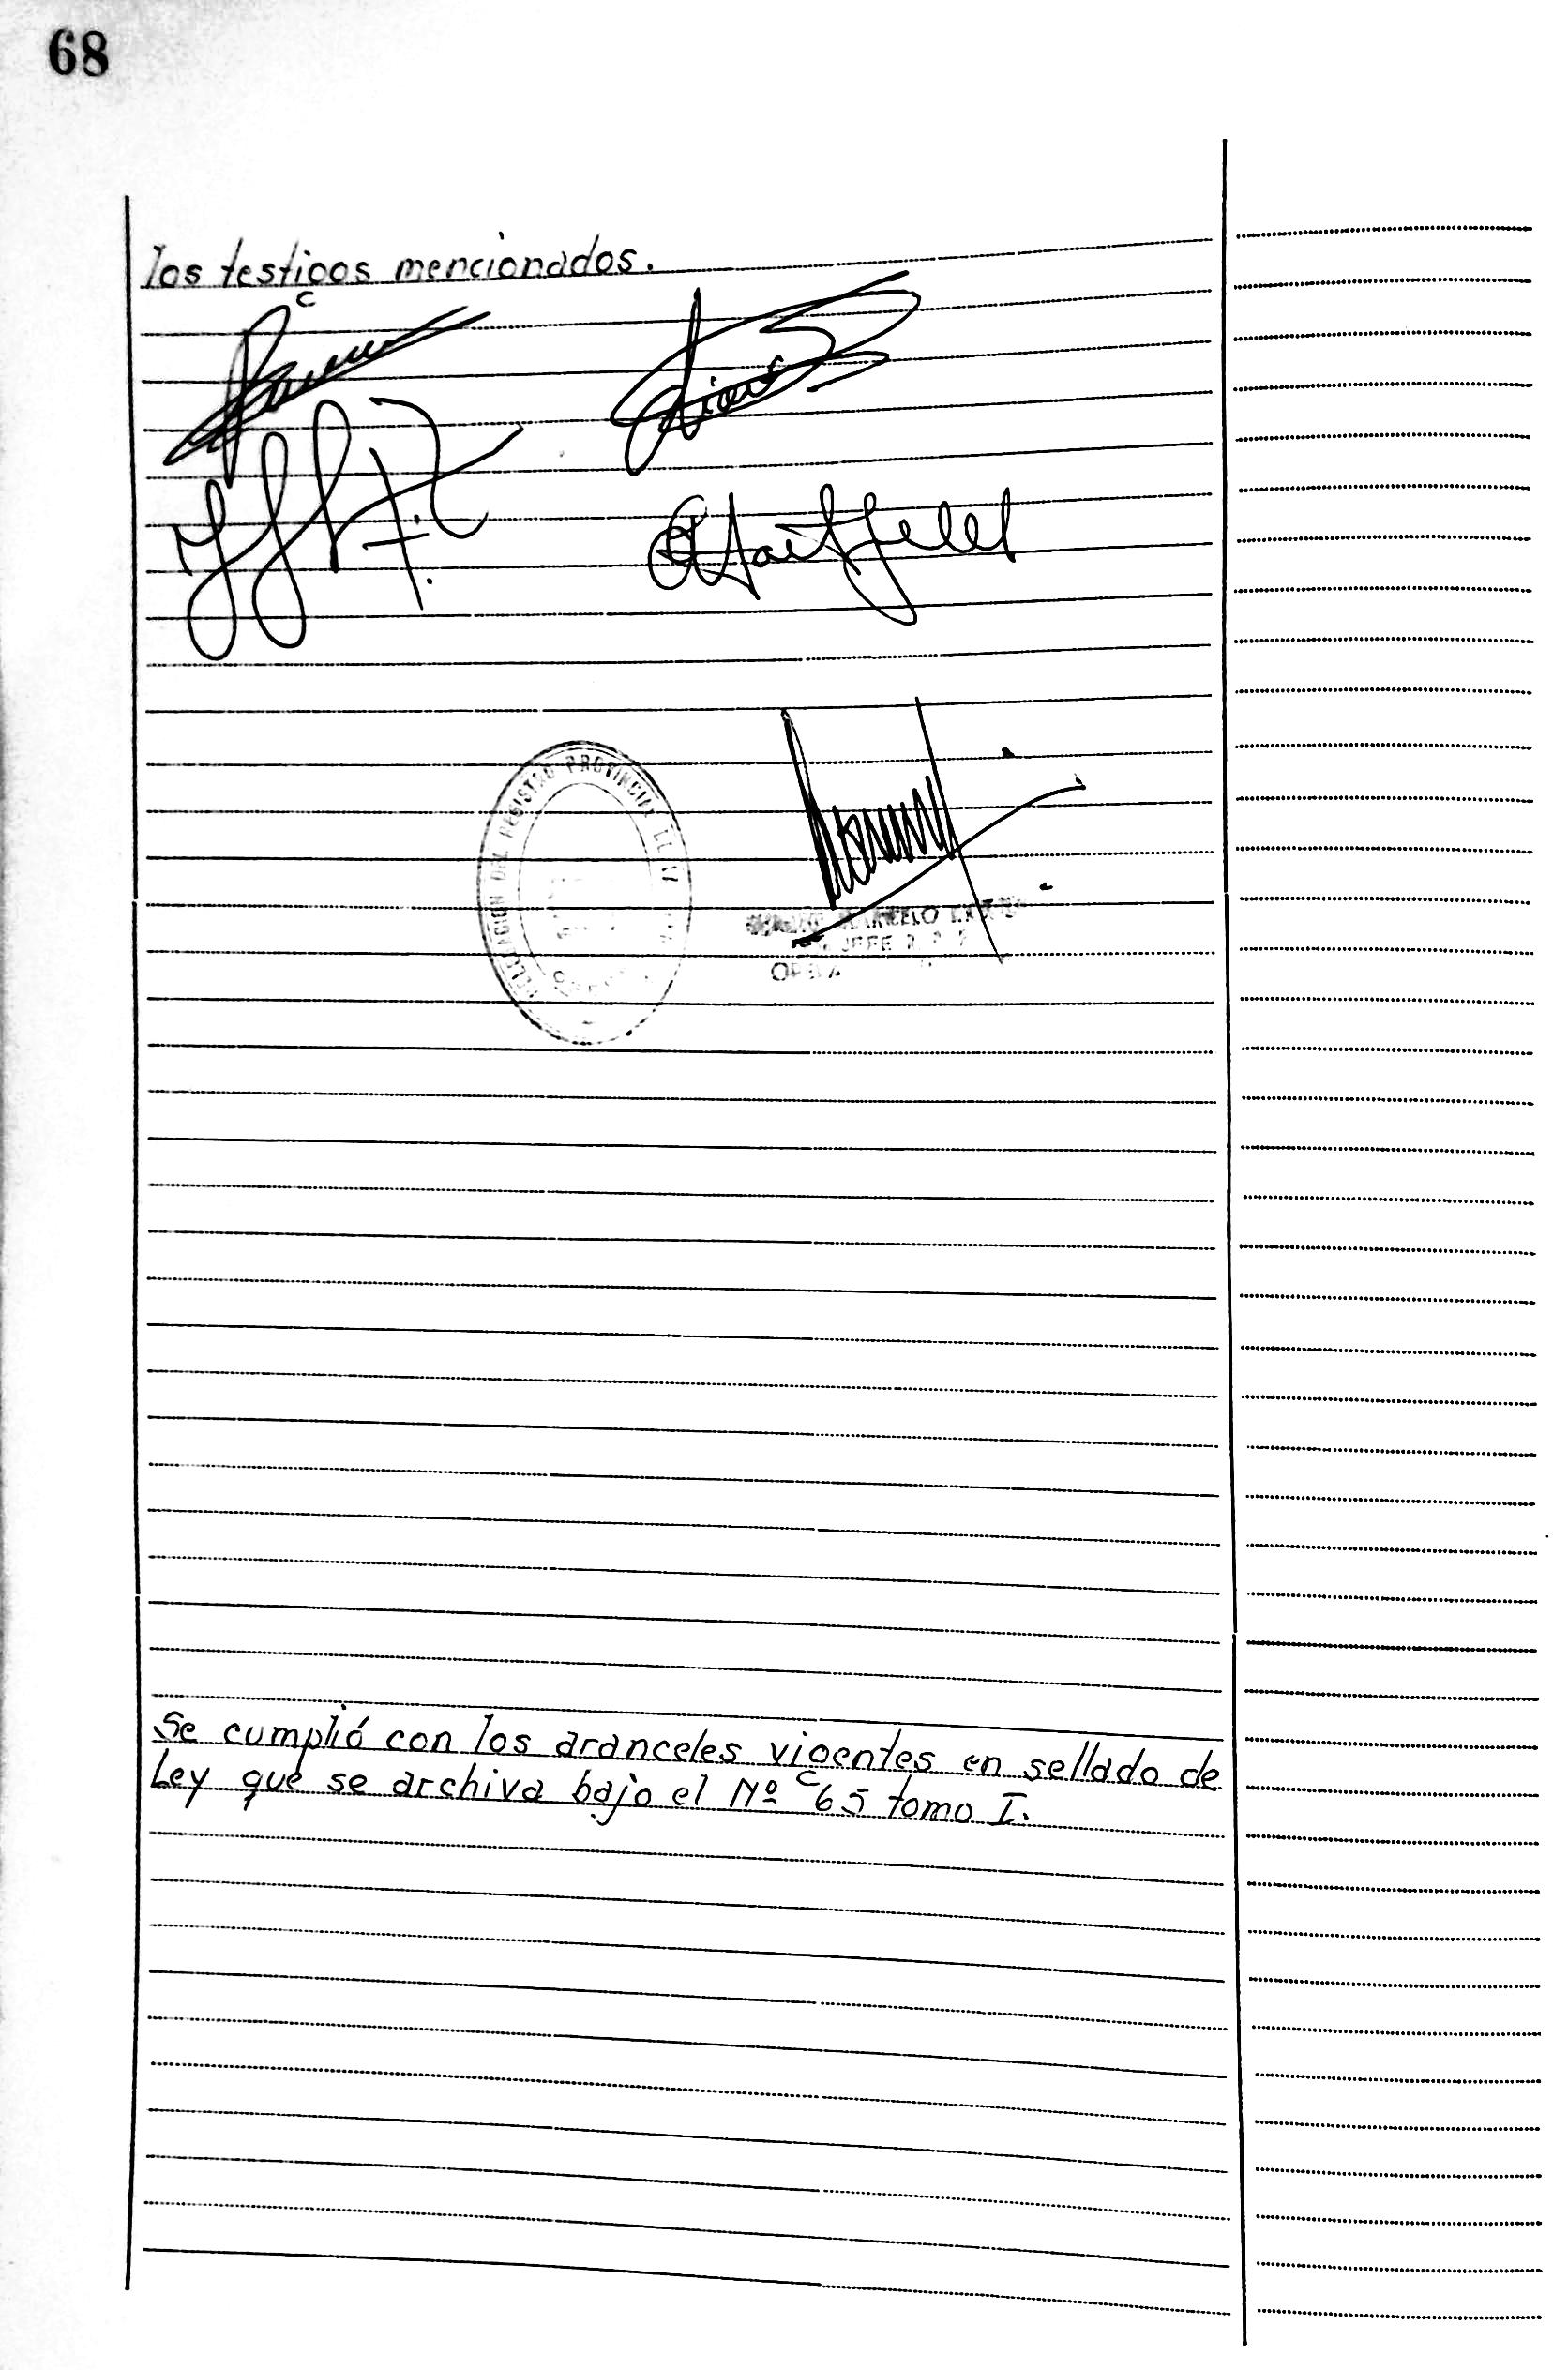 68
los testigos mencionados.
DELEGACION DEL REGISTRO PROVINCIAL DE
MARCELO
JEFE
Se cumplió con los aranceles vigentes en sellado de
Ley que se archiva bajo el Nº 65 tomo I.